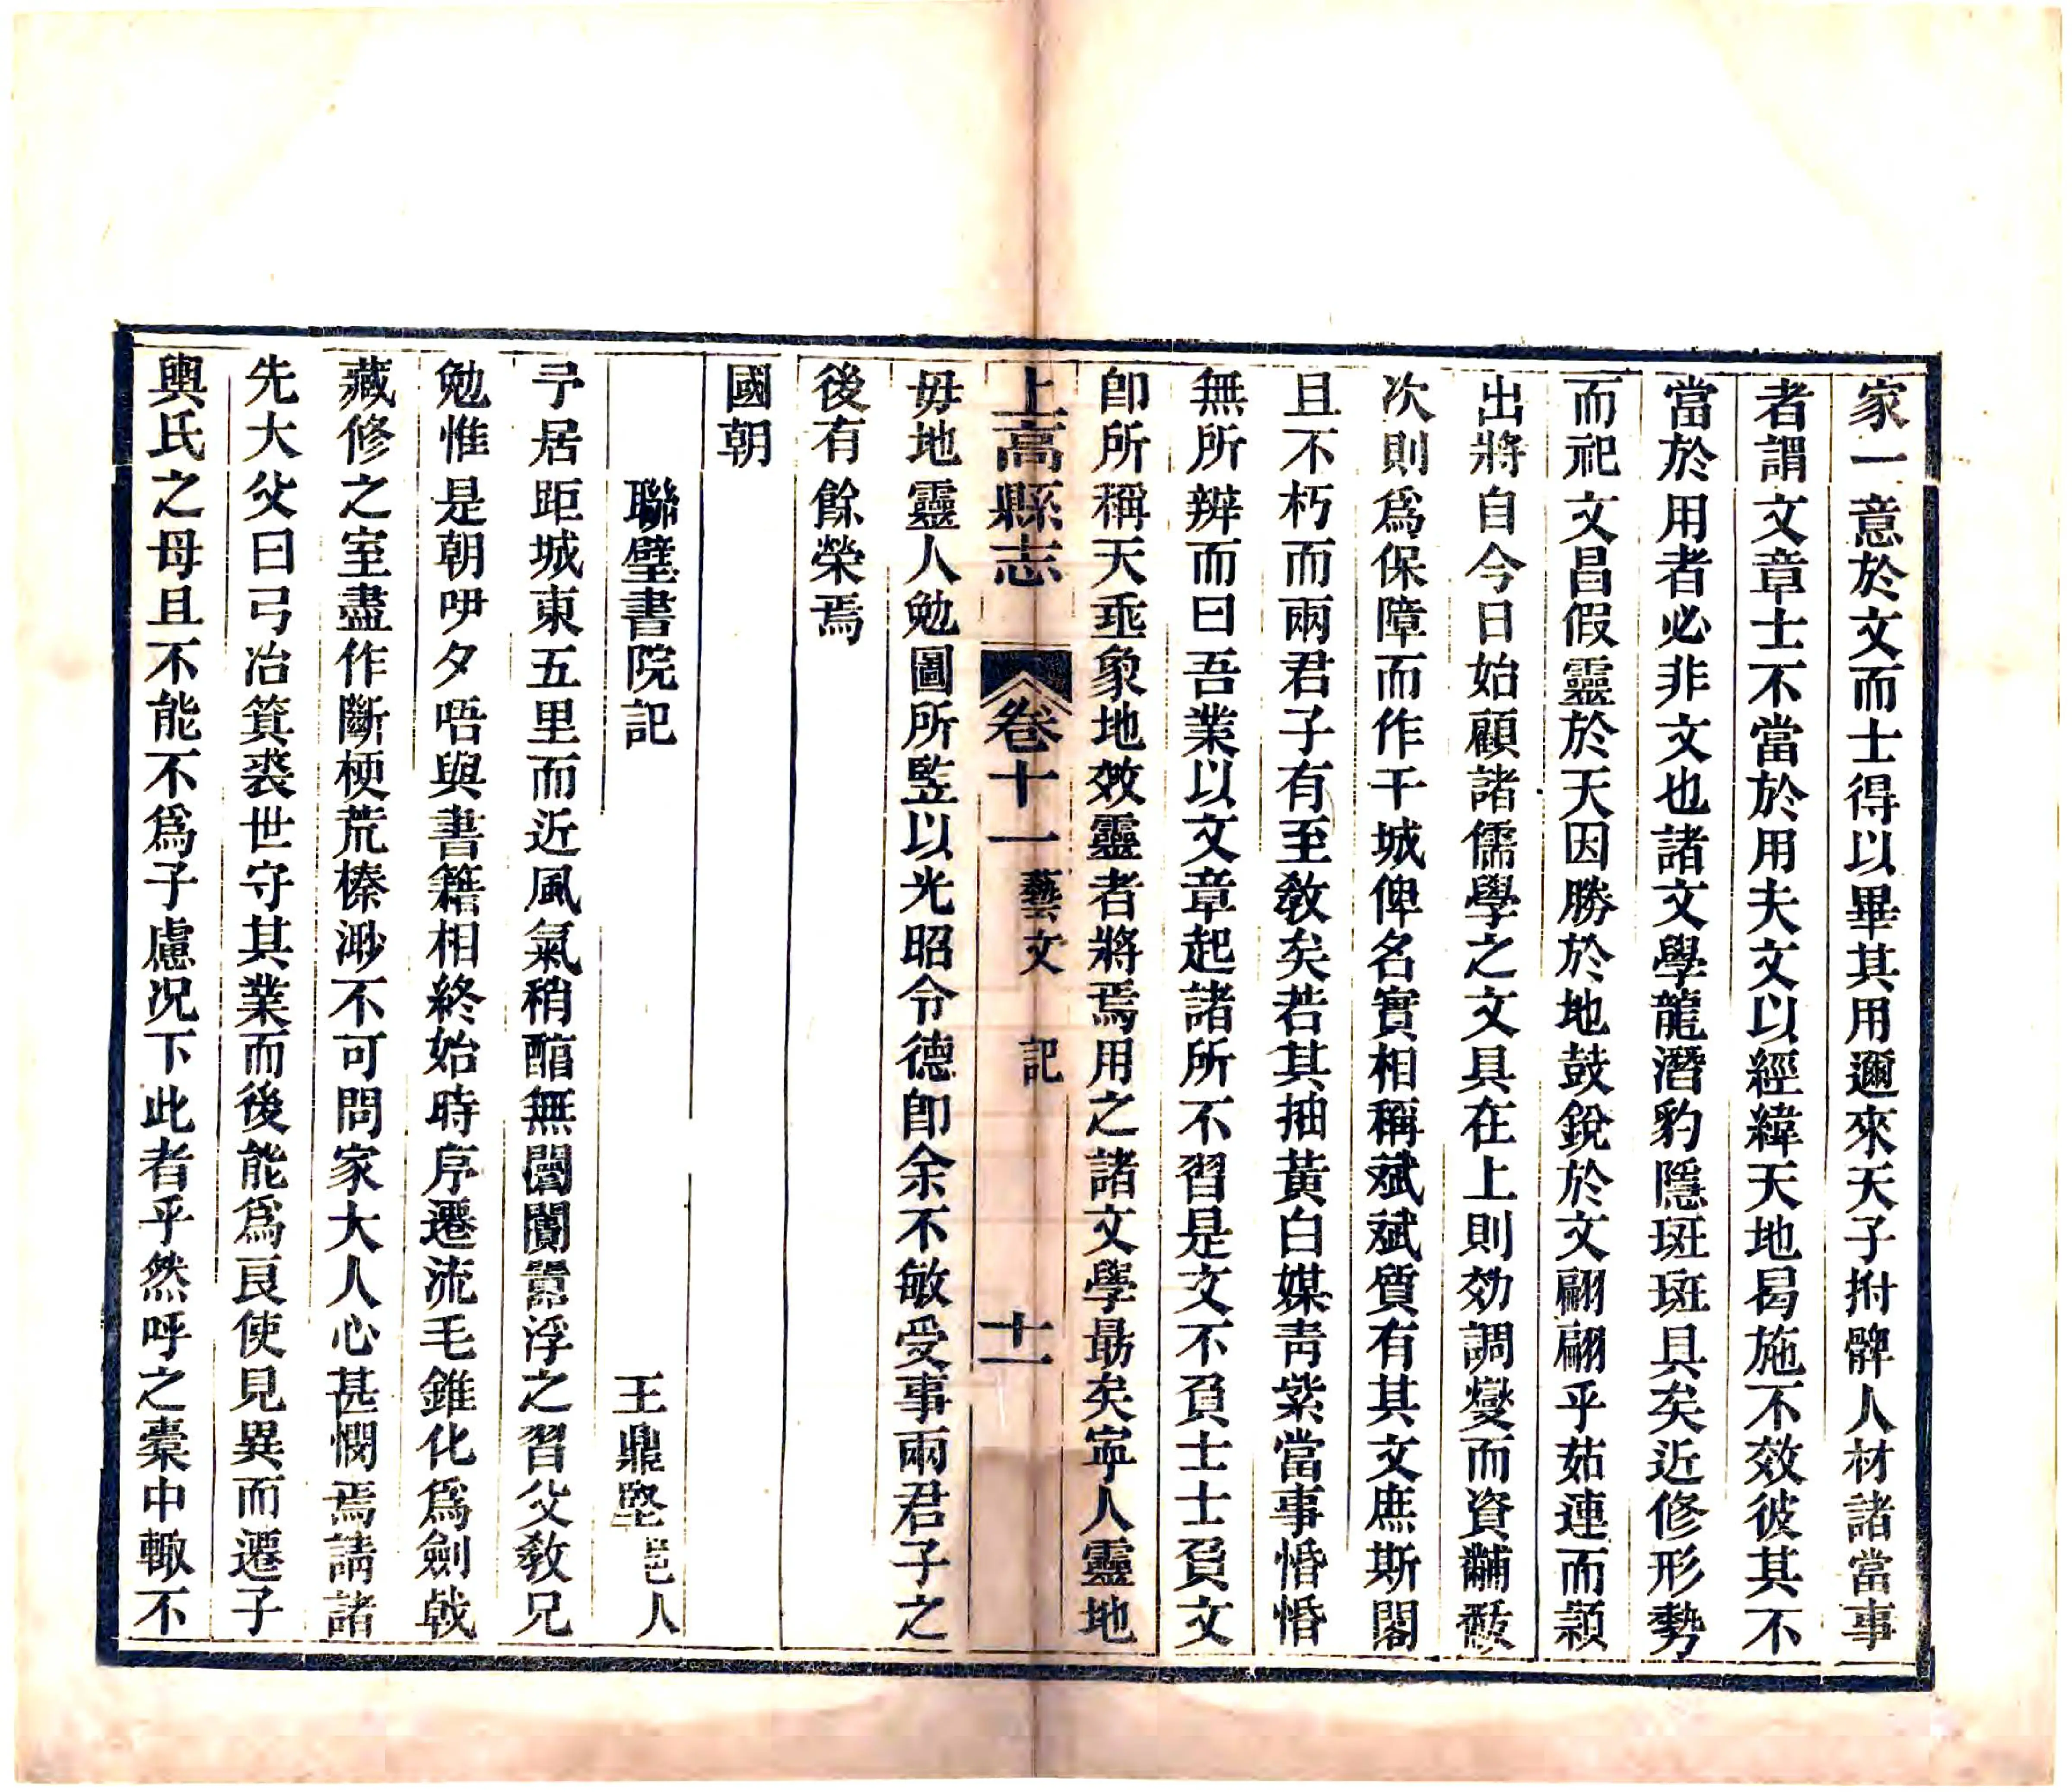 家一意於文而士得以畢其用邇來天子拊髀人材諸當事
者謂文章士不當於用夫文以經緯天地曷施不效彼其不
當於用者必非文也諸文學龍潛豹隱斑斑具矣近修形勢
而祀文昌假靈於天因勝於地鼓銳於文翩翩乎茹連而頴
出將自今日始顧諸儒學之文具在上則効調燮而資黼黻
次則爲保障而作干城俾名實相稱斌斌質有其文庶斯閣
且不朽而兩君子有至敎矣若其抽黃白媒靑紫當事惛惛
無所辨而曰吾業以文章起諸所不習是文不負士士負文
卽所稱天乖象地效靈者將焉用之諸文學勗矣寧人靈地
上高縣志 卷十一 藝文 記 十一
毋地靈人勉圖所監以光昭令德卽余不敏受事兩君子之
後有餘榮焉
國朝
聯璧書院記 王鼎 人
予居距城東五里而近風氣稍酯無闤闠囂浮之習父敎兄
勉惟是朝吚夕唔與書籍相終始時序遷流毛錐化爲劍戟
藏修之室盡作斷梗荒榛渺不可問家大人心甚憫焉請諸
先大父曰弓冶箕裘世守其業而後能爲良使見異而遷子
輿氏之母且不能不爲子慮况下此者乎然呼之橐中輙不